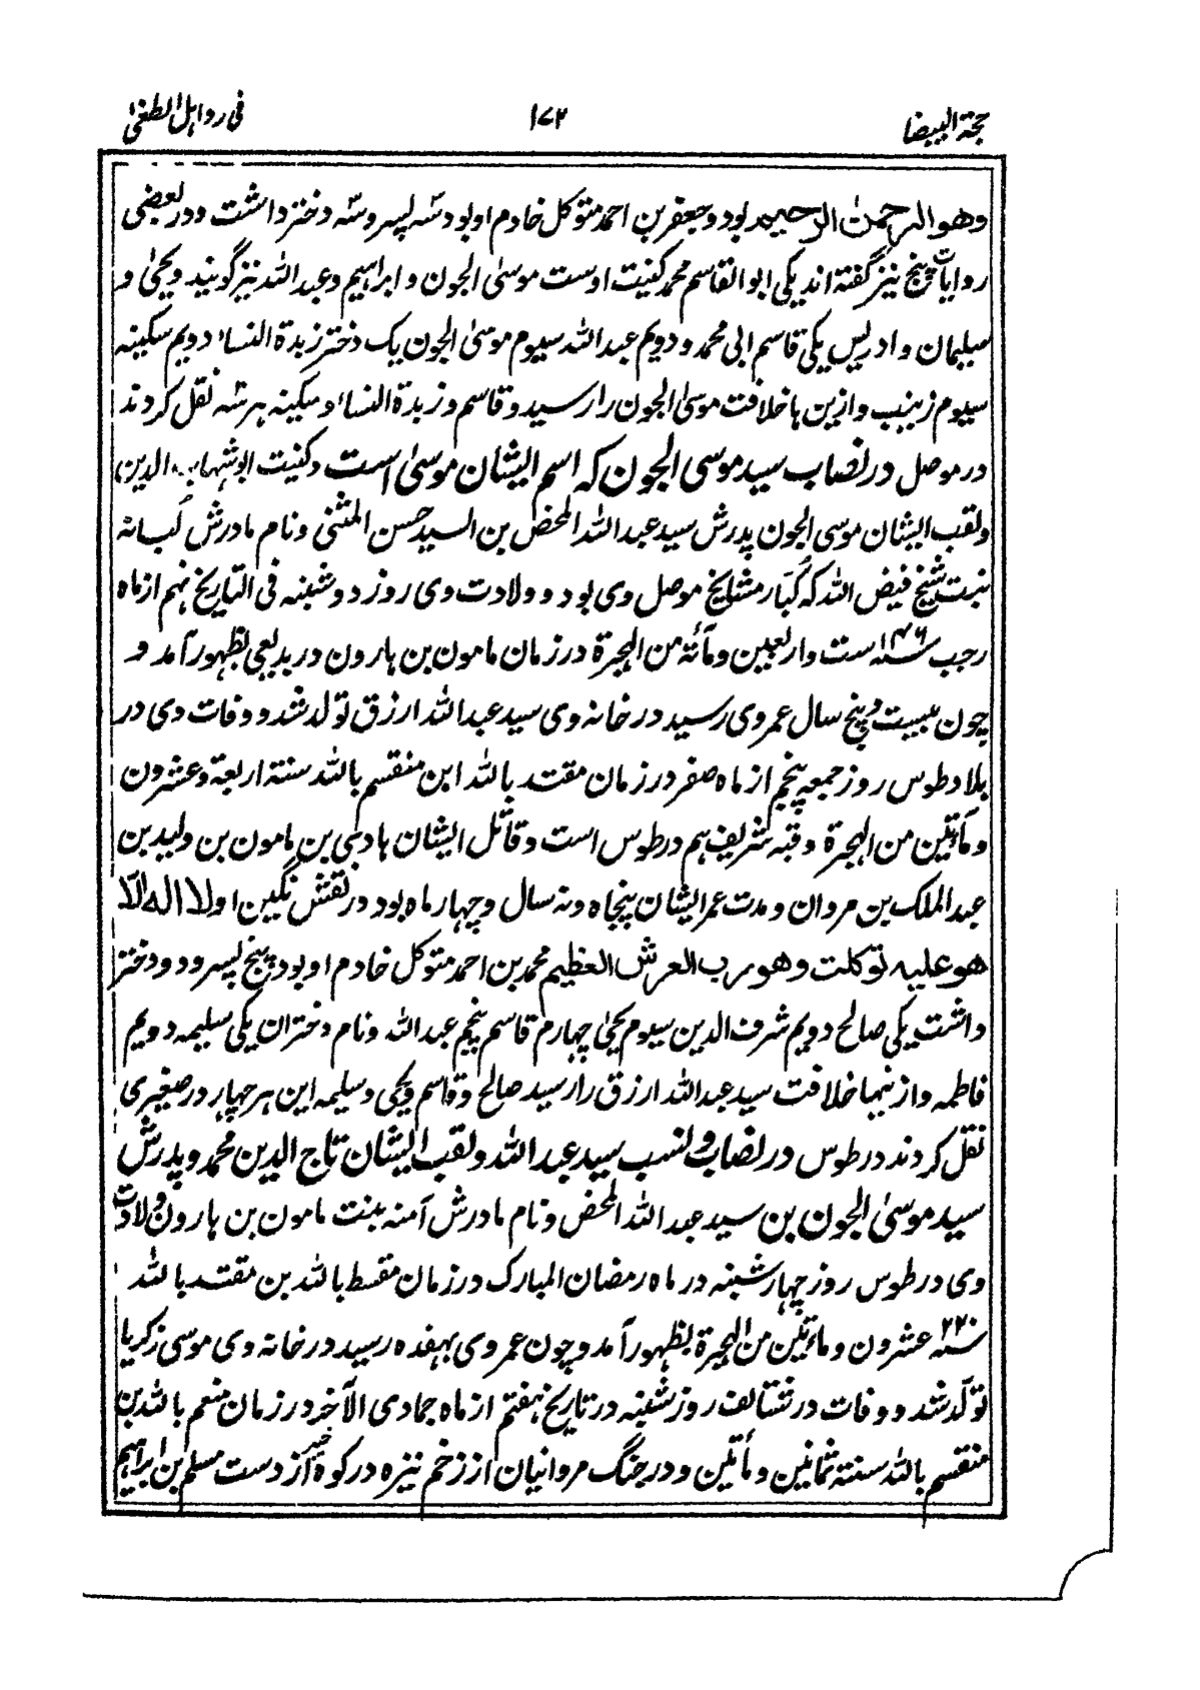 حجة البیضا ۱۷۲ فی رد اہل الطغیٰ
وهو الرحمن الرحیم بود و جعفر بن احمد متوکل خادم او بود سہ پسر و سہ دختر داشت و در بعضی
روایات پنج نیز گفتہ اند یکی ابو القاسم محمد کنیت اوست موسیٰ الجون و ابراہیم و عبد اللہ نیز گویند و یحییٰ و
سلیمان و ادریس یکی قاسم ابی محمد و دویم عبد اللہ سیوم موسیٰ الجون یک دختر زبدة النساء دویم سکینہ
سیوم زینب و ازین ہا خلافت موسیٰ الجون را رسید و قاسم و زبدة النساء و سکینہ ہر سہ نقل کردند
در موصل در نصاب سید موسی الجون کہ اسم ایشان موسیٰ است و کنیت ابو شہاب الدین
و لقب ایشان موسی الجون پدرش سید عبد اللہ المحض بن السید حسن المثنی و نام مادرش لبانہ
بنت شیخ فیض اللہ کہ کبار مشایخ موصل وی بود و ولادت وی روز دوشنبہ فی التاریخ نہم از ماہ
رجب سنہ ۱۴۶ ست و اربعین و مأتہ من الہجرة در زمان مامون بن ہارون در بدیعی بظہور آمد و
چون بیست و پنج سال عمر وی رسید در خانہ وی سید عبد اللہ ارزق تولد شد و وفات وی در
بلاد طوس روز جمعہ پنجم از ماہ صفر در زمان مقتد باللہ ابن منقسم باللہ سنتہ اربعة و عشرون
و مأتین من الہجرة و قبہ شریف ہم در طوس است و قاتل ایشان ہادی بن مامون بن ولید بن
عبد الملک بن مروان و مدت عمر ایشان پنجاہ و نہ سال و چہار ماہ بود در نقش نگین او لا الہ الا
هو علیہ توکلت وهو رب العرش العظیم محمد بن احمد متوکل خادم او بود پنج پسر و دو دختر
داشت یکی صالح دویم شرف الدین سیوم یحییٰ چہارم قاسم پنجم عبد اللہ و نام دختران یکی سلیمہ دویم
فاطمہ و از ینہا خلافت سید عبد اللہ ارزق را رسید صالح و قاسم و یحیی و سلیمہ این ہر چہار در صغیری
نقل کردند در طوس در نصاب و نسب سید عبد اللہ و لقب ایشان تاج الدین محمد و پدرش
سید موسیٰ الجون بن سید عبد اللہ المحض و نام مادرش آمنہ بنت مامون بن ہارون ولادت
وی در طوس روز چہار شنبہ در ماہ رمضان المبارک در زمان مقسط باللہ بن مقتد باللہ
سنہ ۲۲۰ عشرون و مأتین من الہجرة بظہور آمد و چون عمر وی بہفدہ رسید در خانہ وی موسی زکریا
تولد شد و وفات در روز شنبہ در تاریخ ہفتم از ماہ جمادی الآخر در زمان منعم باللہ بن
منقسم باللہ سنتہ ثمانین و مأتین و در جنگ مروانیان از زخم نیزہ در کوہ خیبر از دست مسلم بن ابراہیم